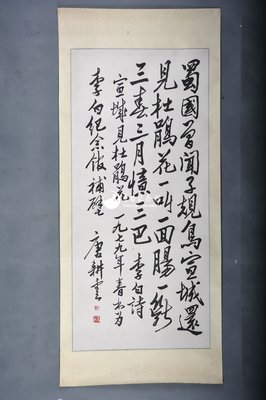 蜀國曾聞子規鳥宣城還
見杜鵑花一叫一回腸一斷
三春三月憶三巴 李白詩
宣城見杜鵑花一九七九年春书为
李白纪念馆補壁 唐耕雲